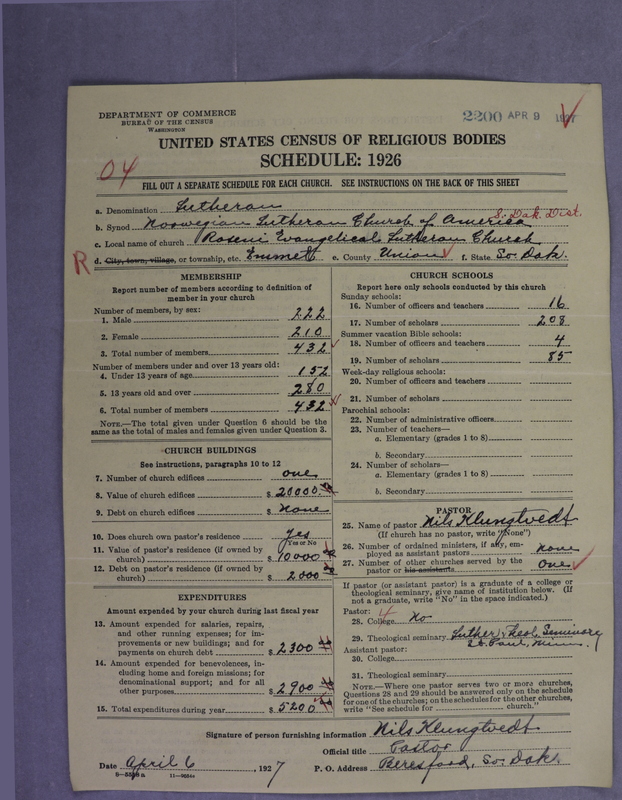 DEPARTMENT OF COMMERCE
BUREAU OF THE CENSUS
WASHINGTON
2200 APR 9 1927
UNITED STATES CENSUS OF RELIGIOUS BODIES
SCHEDULE: 1926
04
FILL OUT A SEPARATE SCHEDULE FOR EACH CHURCH. SEE INSTRUCTIONS ON THE BACK OF THIS SHEET
a. Denomination Lutheran
b. Synod Norwegian Lutheran Church of America S. Dak. Dist.
c. Local name of church Roseni Evangelical Lutheran Church
R d. City, town, village, or township, etc. Emmet e. County Union f. State So. Dak.
MEMBERSHIP
Report number of members according to definition of
member in your church
Number of members, by sex:
1. Male 222
2. Female 210
3. Total number of members 432
Number of members under and over 13 years old:
4. Under 13 years of age 152
5. 13 years old and over 280
6. Total number of members 432
NOTE.—The total given under Question 6 should be
same as the total of males and females given under Question 3.
CHURCH BUILDINGS
See instructions, paragraphs 10 to 12
7. Number of church edifices one
8. Value of church edifices $ 20000.00
9. Debt on church edifices $ None
10. Does church own pastor's residence Yes
Yes or No
11. Value of pastor's residence (if owned by
church) $ 10000
12. Debt on pastor's residence (if owned by
church) $ 2000
EXPENDITURES
Amount expended by your church during last fiscal year
13. Amount expended for salaries, repairs,
and other running expenses; for im-
provements or new buildings; and for
payments on church debt $ 2300
14. Amount expended for benevolences, in-
cluding home and foreign missions; for
denominational support; and for all
other purposes $ 2900
15. Total expenditures during year $ 5200
CHURCH SCHOOLS
Report here only schools conducted by this church
Sunday schools:
16. Number of officers and teachers 16
17. Number of scholars 208
Summer vacation Bible schools:
18. Number of officers and teachers 4
19. Number of scholars 85
Week-day religious schools:
20. Number of officers and teachers
21. Number of scholars
Parochial schools:
22. Number of administrative officers
23. Number of teachers—
a. Elementary (grades 1 to 8)
b. Secondary
24. Number of scholars—
a. Elementary (grades 1 to 8)
b. Secondary
PASTOR
25. Name of pastor Nils Klungtvedt
(If church has no pastor, write "None")
26. Number of ordained ministers, if any, em-
ployed as assistant pastors none
27. Number of other churches served by the
pastor or his assistants one
If pastor (or assistant pastor) is a graduate of a college or
theological seminary, give name of institution below. (If
not a graduate, write "No" in the space indicated.)
Pastor:
28. College No
29. Theological seminary Luther Theol. Seminary
St. Paul, Minn.
Assistant pastor:
30. College
31. Theological seminary
NOTE.—Where one pastor serves two or more churches,
Questions 28 and 29 should be answered only on the schedule
for one of the churches; on the schedules for the other churches,
write "See schedule for church."
Signature of person furnishing information Nils Klungtvedt
Official title Pastor
Date April 6, 1927 P. O. Address Beresford, So. Dak.